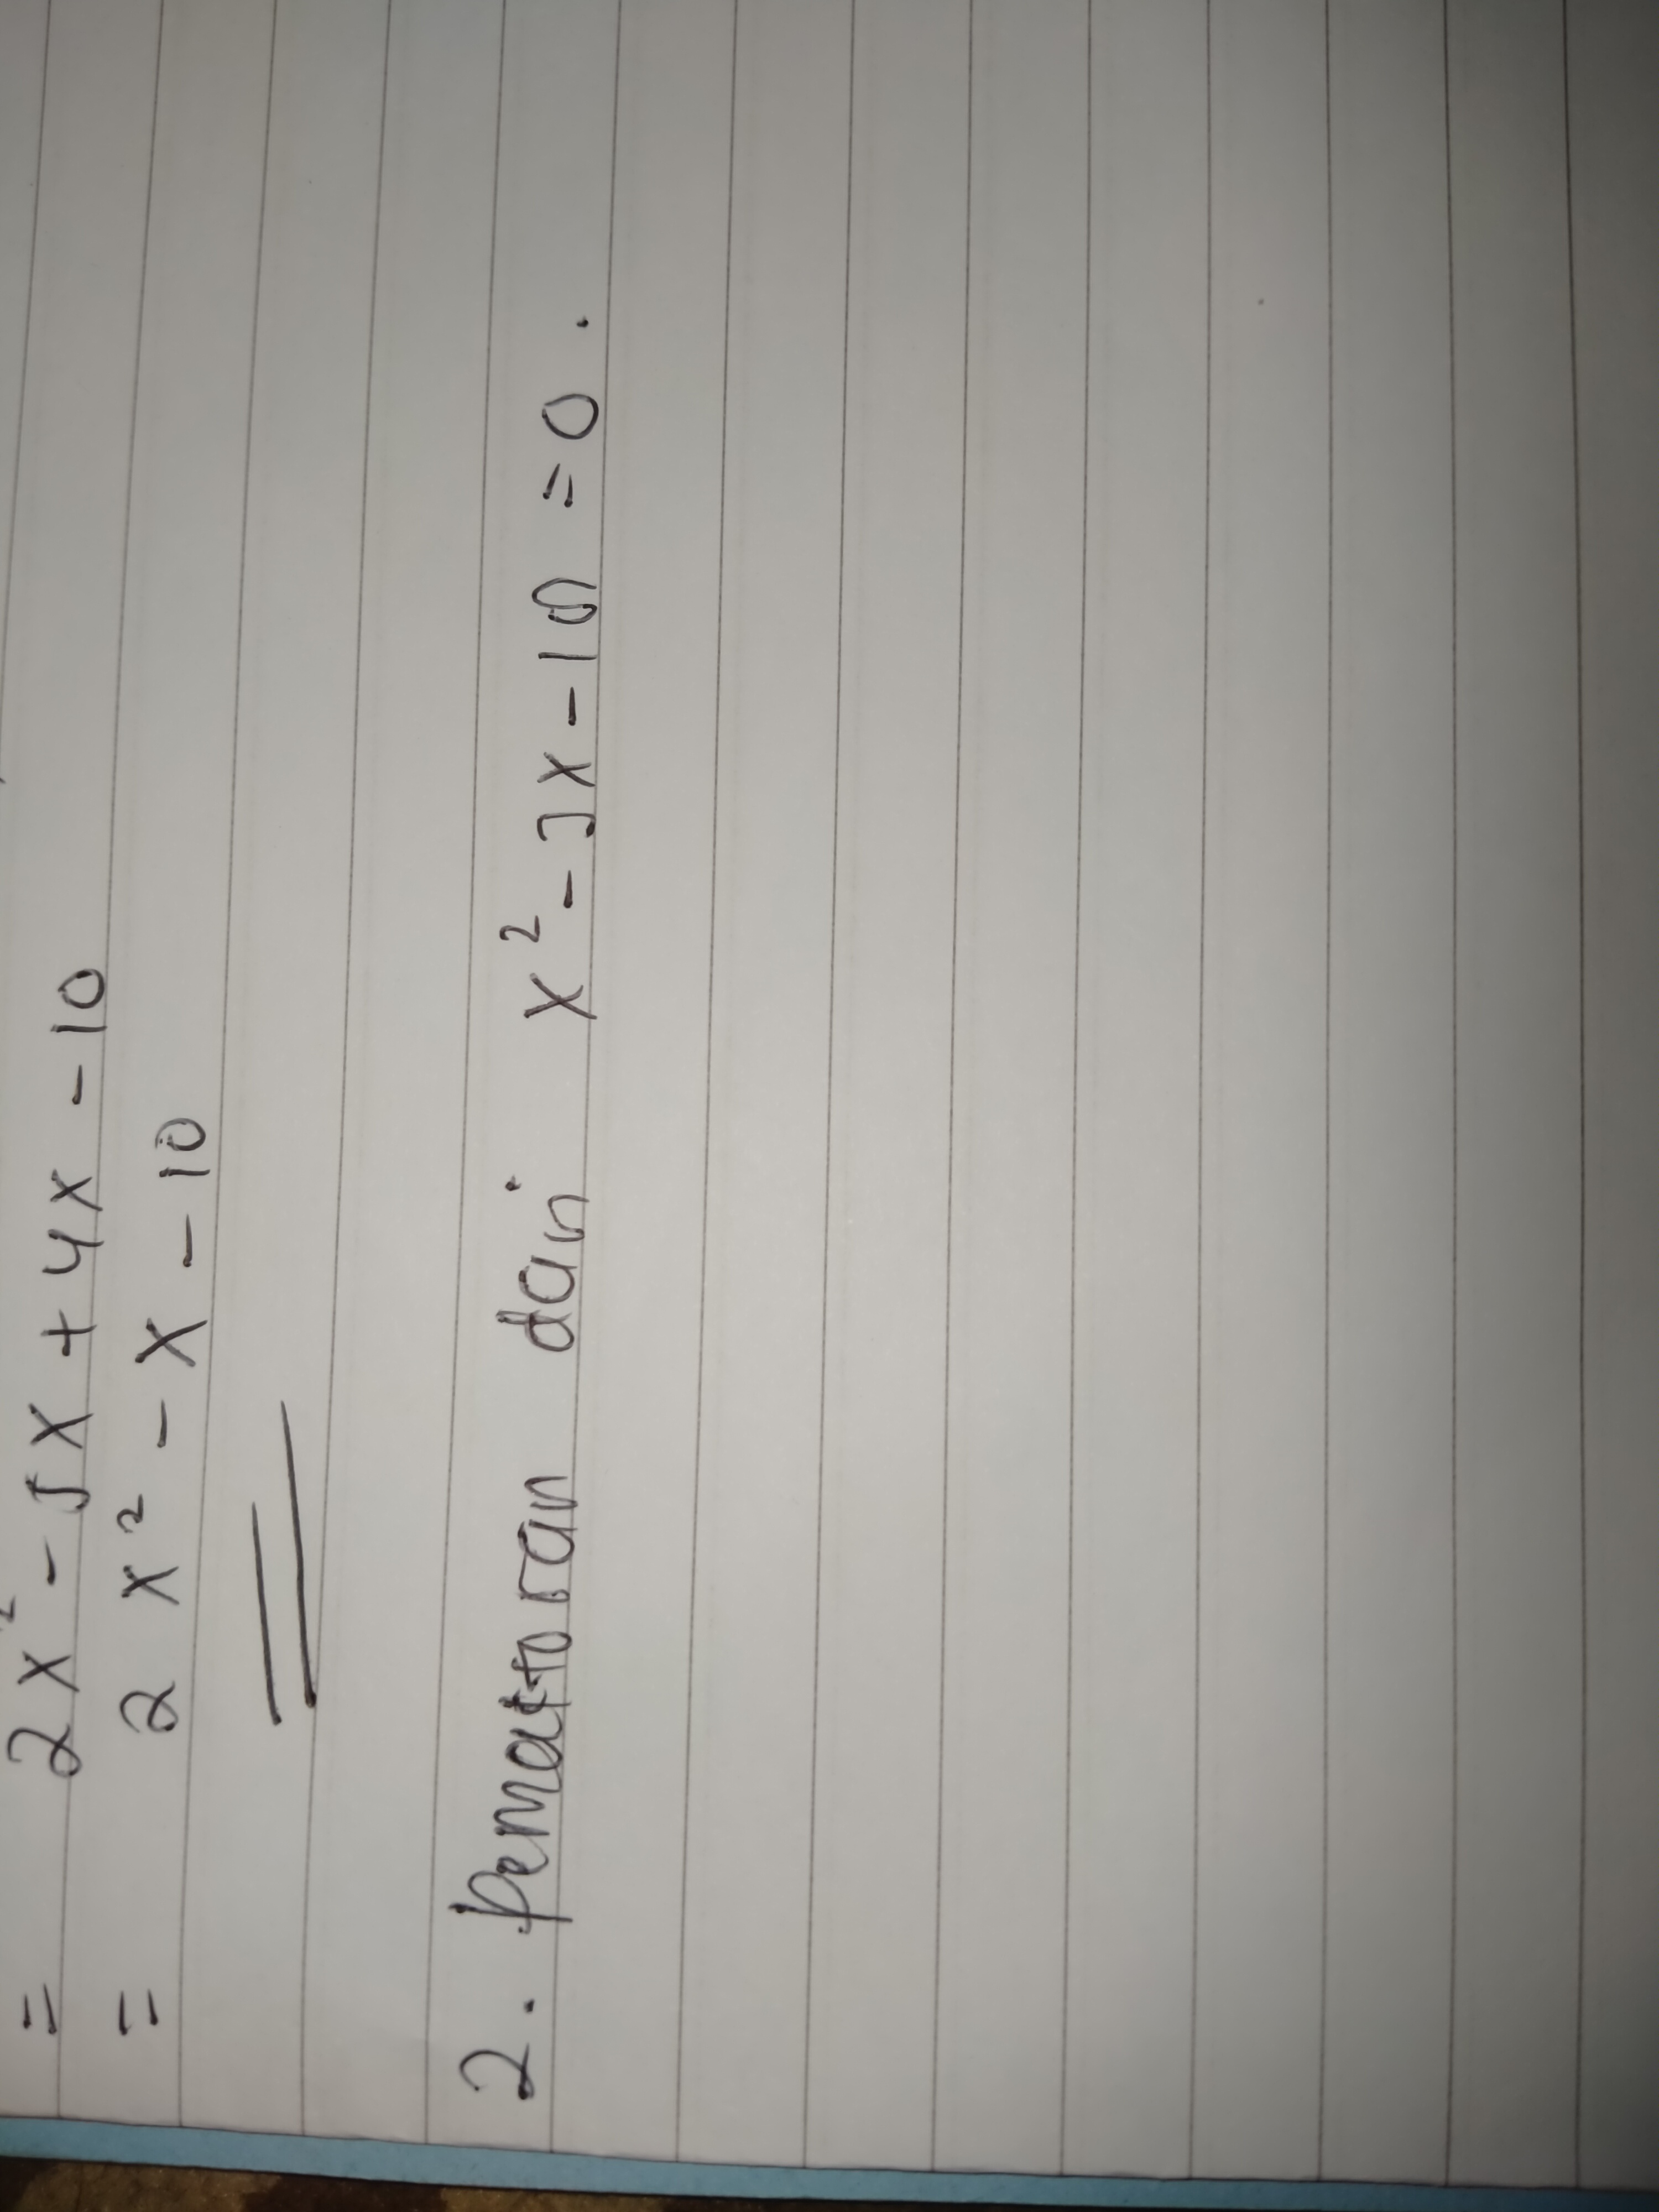 = 2x² - 5x + 4x - 10
= 2x² - x - 10
2. Pemaktoran dari x² - 3x - 10 = 0.